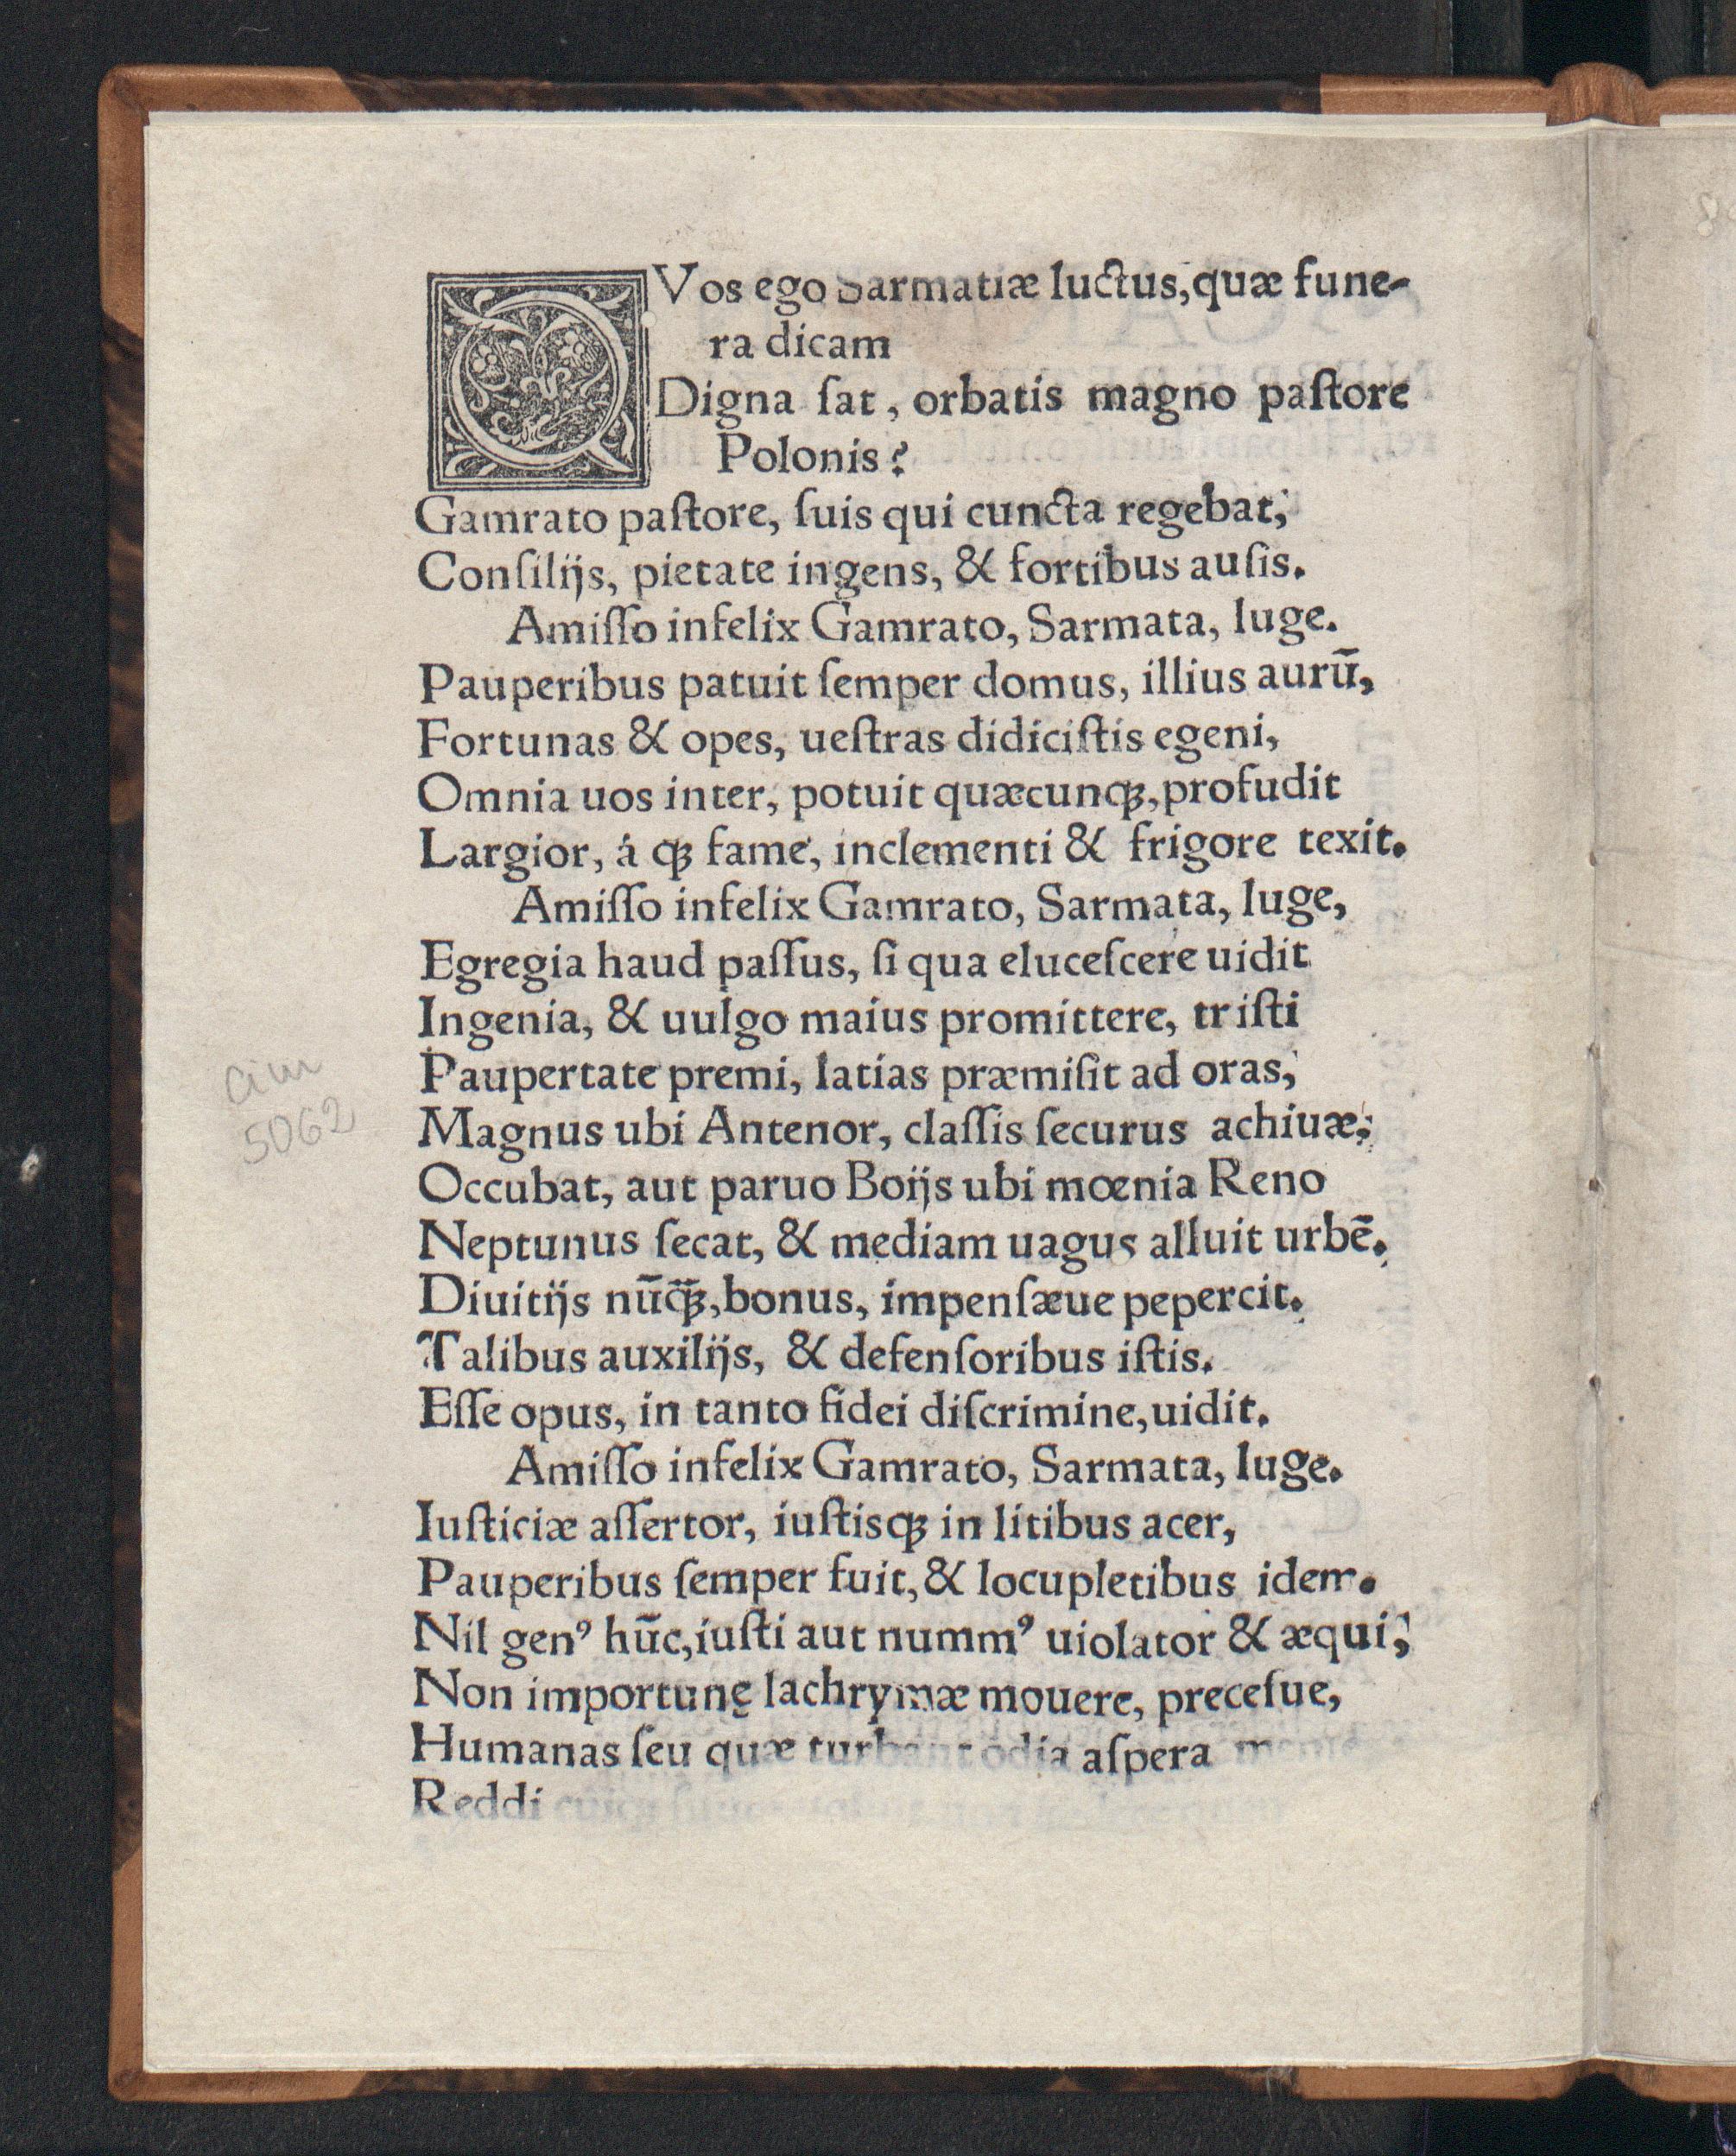 QVos ego Sarmatiæ luctus, quæ fune-
ra dicam
Digna ſat, orbatis magno paſtore
Polonis?
Gamrato paſtore, ſuis qui cuncta regebat,
Conſilijs, pietate ingens, & fortibus auſis.
Amiſſo infelix Gamrato, Sarmata, luge.
Pauperibus patuit ſemper domus, illius aurū,
Fortunas & opes, ueſtras didiciſtis egeni,
Omnia uos inter, potuit quæcunqꝫ, profudit
Largior, á qꝫ fame, inclementi & frigore texit.
Amiſſo infelix Gamrato, Sarmata, luge,
Egregia haud paſſus, ſi qua eluceſcere uidit
Ingenia, & uulgo maius promittere, triſti
Paupertate premi, latias præmiſit ad oras,
Magnus ubi Antenor, claſſis ſecurus achiuæ,
Occubat, aut paruo Boijs ubi mœnia Reno
Neptunus ſecat, & mediam uagus alluit urbē.
Diuitijs nūq̄ꝫ, bonus, impenſæue pepercit.
Talibus auxilijs, & defenſoribus iſtis.
Eſſe opus, in tanto fidei diſcrimine, uidit.
Amiſſo infelix Gamrato, Sarmata, luge.
Iuſticiæ aſſertor, iuſtisqꝫ in litibus acer,
Pauperibus ſemper fuit, & locupletibus idem.
Nil genꝰ hūc, iuſti aut nummꝰ uiolator & æqui,
Non importunę lachrymæ mouere, preceſue,
Humanas ſeu quæ turbant odia aſpera
Reddi cuiqꝫ
Cim
5062